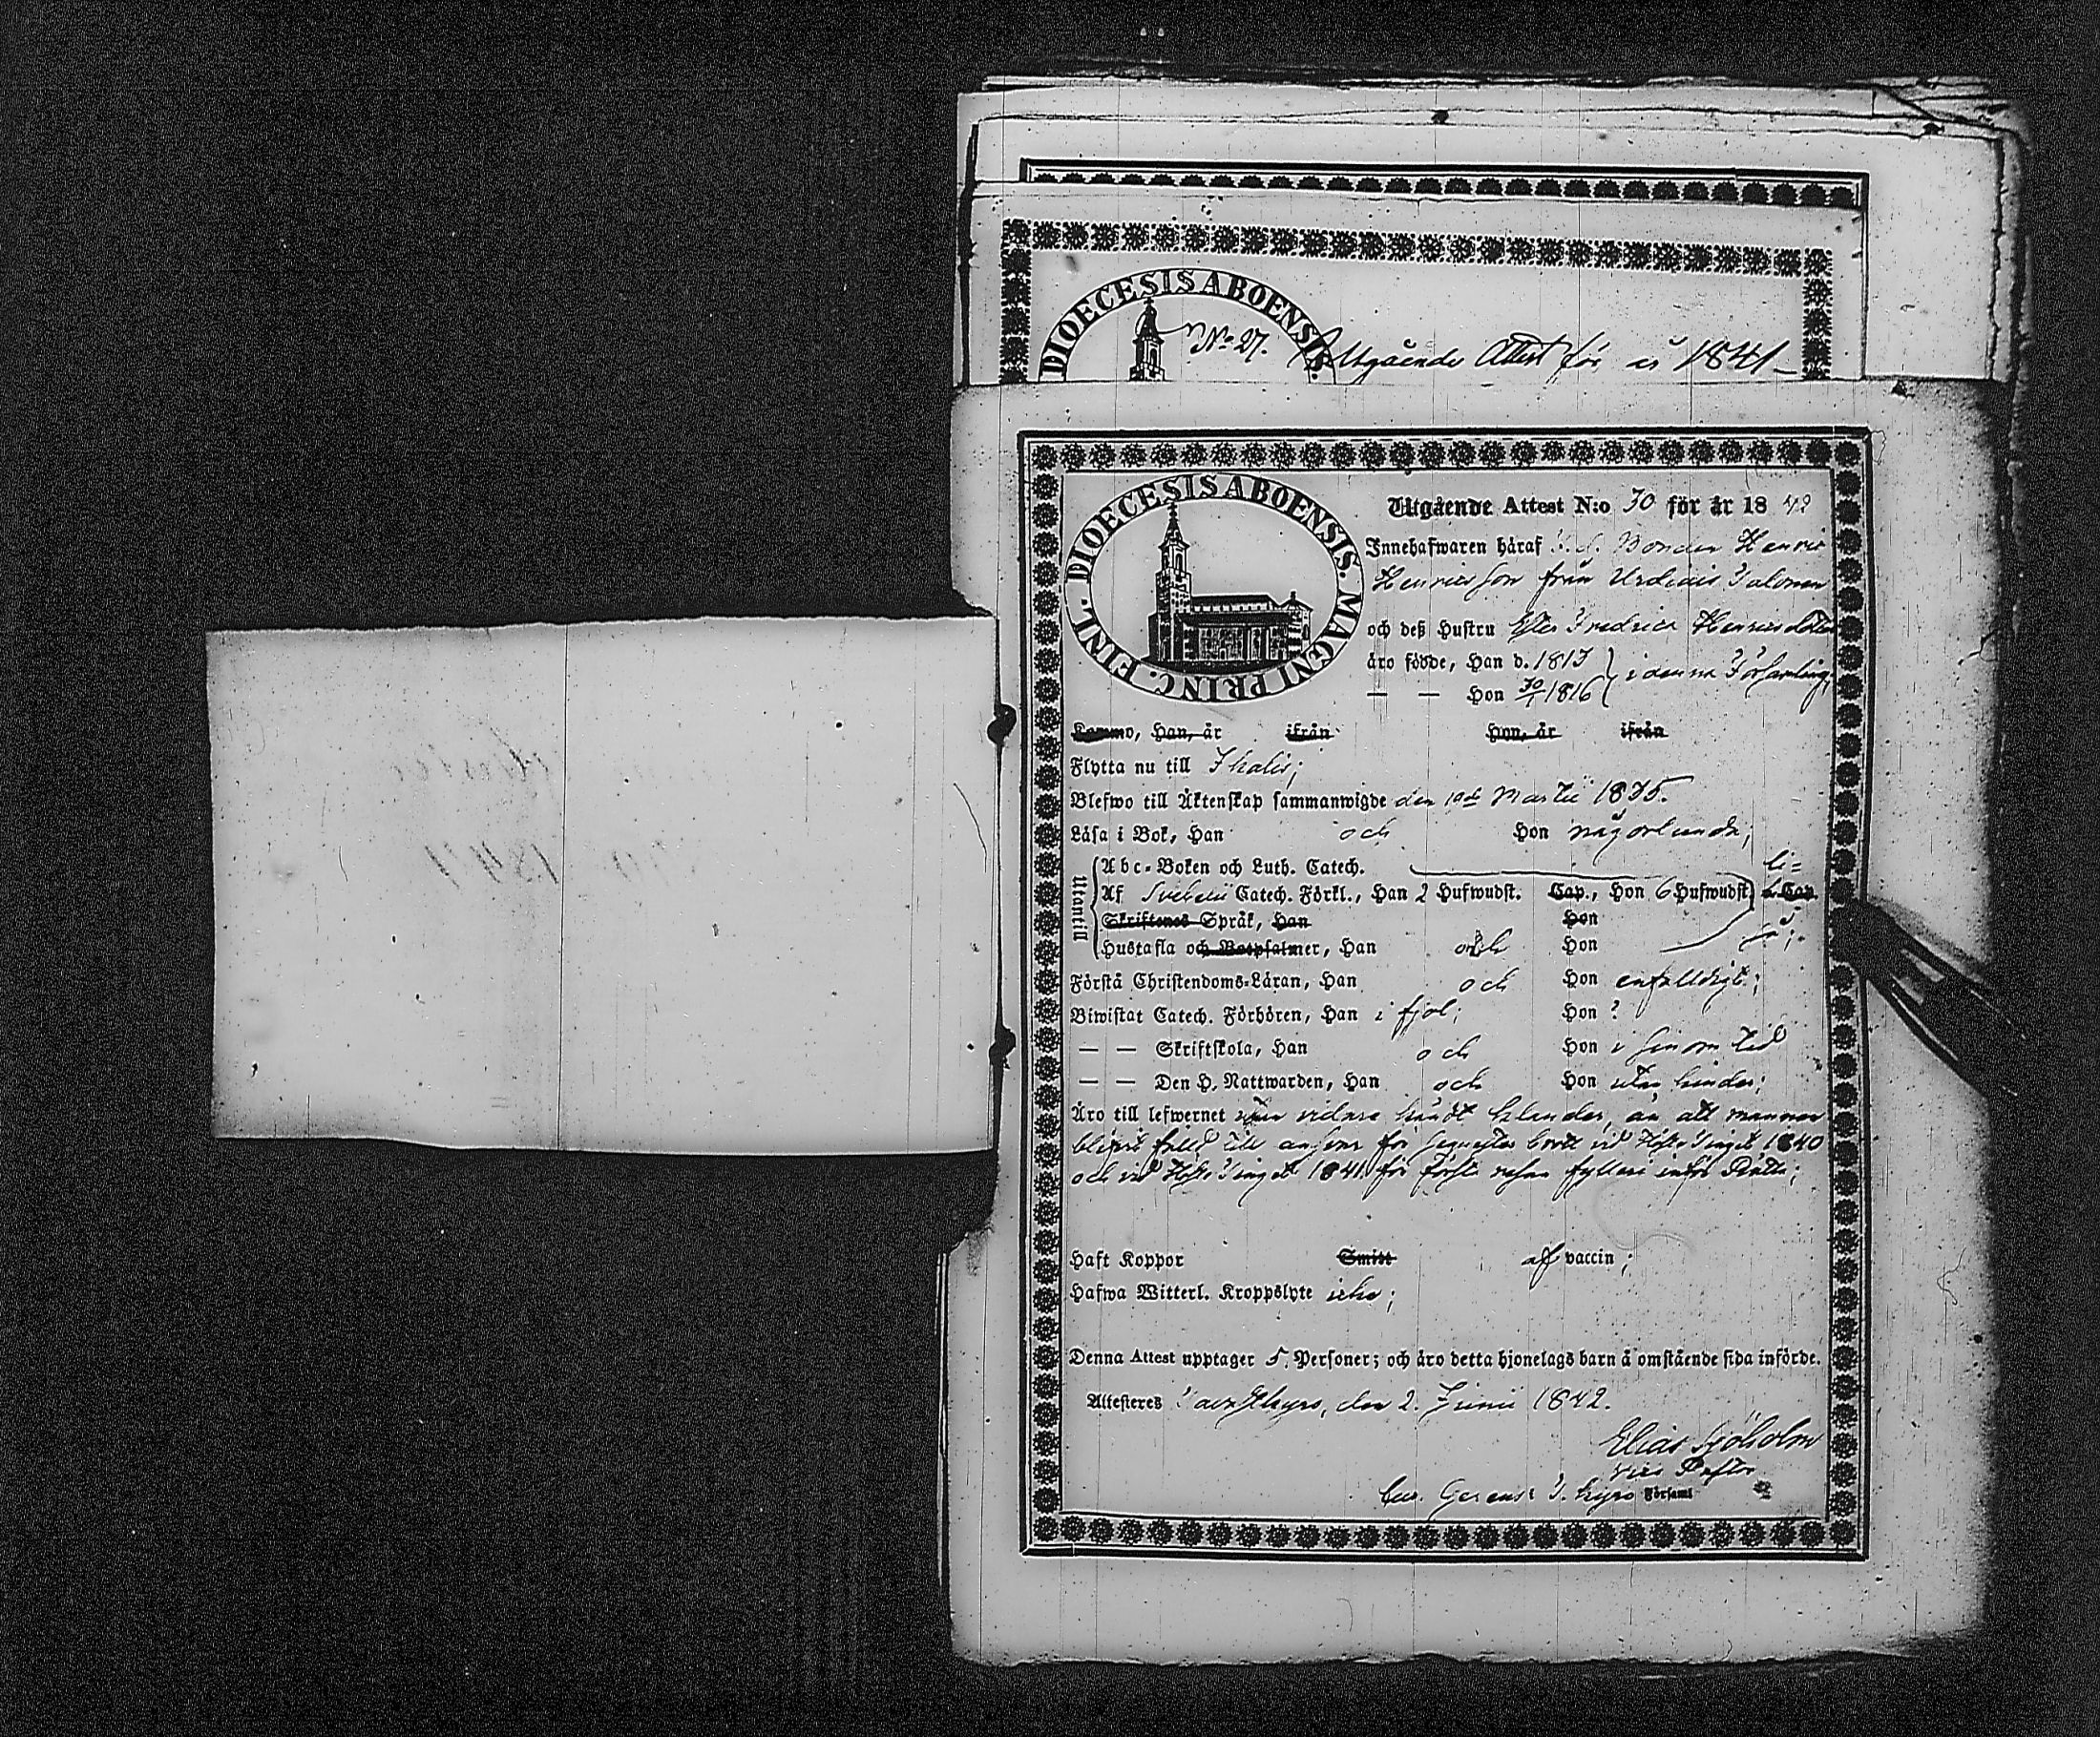 DIOECESIS ABOENSIS.
No 27. Utgående Attest för år 1841
DIOECESIS ABOENSIS. MAGNI PRINC. FINL.
Utgående Attest N:o 30 för år 1842
Innehafwaren häraf f. d. Bonden Henric
Henricsson från
och deß Hustru Henricsdotter
äro födde, Han d. 1813 } i denna Församling,
— — Hon 30/1 1816
Kommo, Han, år ifrån Hon, år ifrån
Flytta nu till Ikalis;
Blefwo till Äktenskap sammanwigde den Martii 1835.
Läsa i Bok, Han och Hon någorlunda;
Utantill
Abc-Boken och Luth. Catech.
Af Svebelii Catech. Förkl., Han 2 Hufwudst. Cap., Hon 6 Hufwudst. Cap.
Skriftenes Språk, Han Hon
Hustafla och Botpsalmer, Han och Hon
Förstå Christendoms-Läran, Han och Hon enfalldigt;
Biwistat Catech. Förhören, Han i fjol; Hon ?
— — Skriftskola, Han och Hon i sin om tid
— — Den H. Nattwarden, Han och Hon utan hinder;
Äro till lefwernet utan vidare kändt klander, än att mannen
blifvit fälld till ansvar för vid Höste Tinget 1840
och vid Höste Tinget 1841 för första resan fylleri inför Rätta;
Haft Koppor Smitt af vaccin;
Hafwa Witterl. Kroppslyte icke;
Denna Attest upptager 5. Personer; och äro detta hjonelags barn å omstående sida införde.
Attesteres Tavastkyro, den 2. Junii 1842.
Elias Sjöholm
Vice Pastor
Cur. Gerens i T. kyro Församl